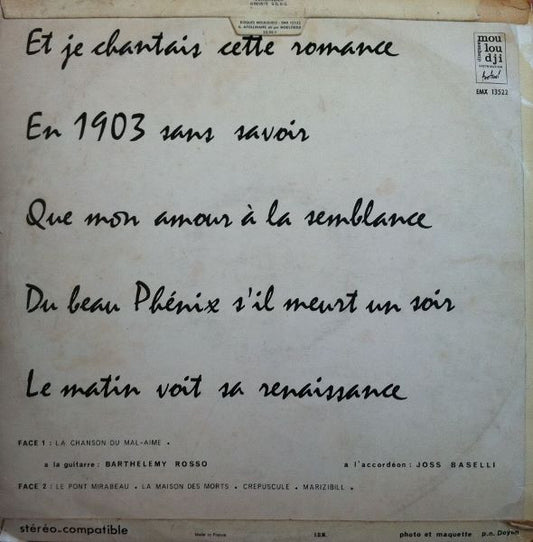 DISQUES MOULOUDJI - EMX 13522
G. APOLLINAIRE dit par MOULOUDJI
Et je chantais cette romance
disques
mou
lou
dji
DISTRIBUTION
festival
EMX 13522
En 1903 sans savoir
Que mon amour à la semblance
Du beau Phénix s'il meurt un soir
Le matin voit sa renaissance
FACE 1 : LA CHANSON DU MAL-AIME .
a la guitarre : BARTHELEMY ROSSO
a l'accordéon : JOSS BASELLI
FACE 2 : LE PONT MIRABEAU . LA MAISON DES MORTS . CREPUSCULE . MARIZIBILL .
stéréo-compatible
Made in France
photo et maquette p.n. Doyon